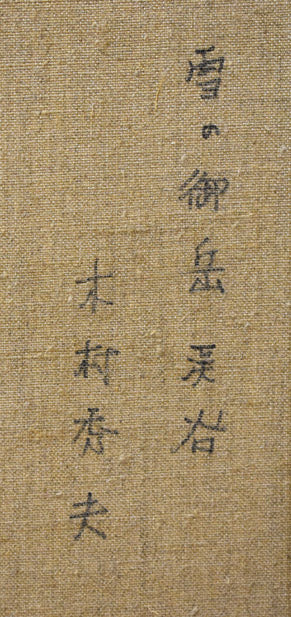 雪の御岳渓谷
木村秀夫